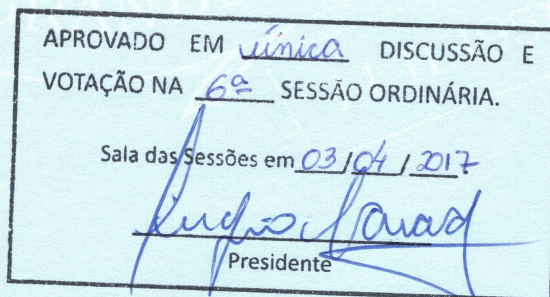 APROVADO EM única DISCUSSÃO E
VOTAÇÃO NA 6ª SESSÃO ORDINÁRIA.
Sala das Sessões em 03/04/2017
Presidente